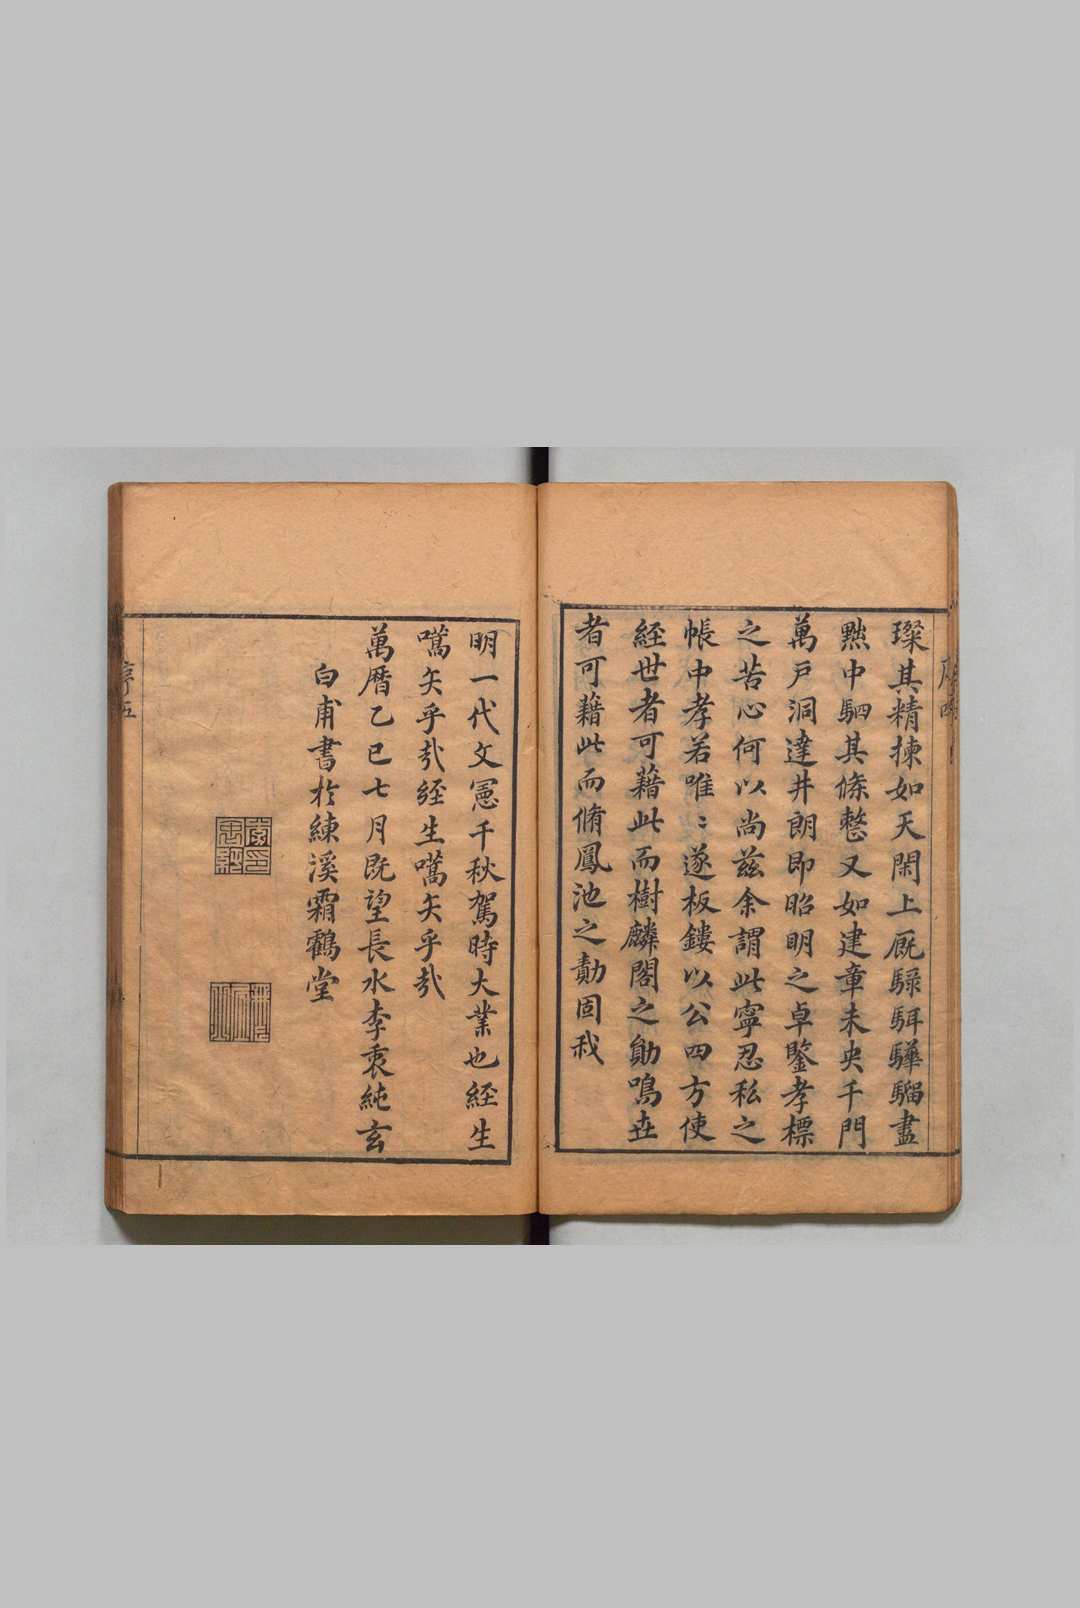 璨其精揀如天閑上厩騄駬驊騮盡
㸃中駟其條整又如建章未央千門
萬戸洞達井朗即昭明之卓鑒孝標
之苦心何以尚兹余謂此寧忍私之
帳中孝若唯〻遂板鏤以公四方使
経世者可藉此而樹麟閣之勛鳴世
者可藉此而脩鳳池之勣固我
明一代文憲千秋駕時大業也経生
嚆矢乎㢤経生嚆矢乎㢤
萬曆乙巳七月既望長水李衷純玄
白甫書於練溪霜鶴堂
序五